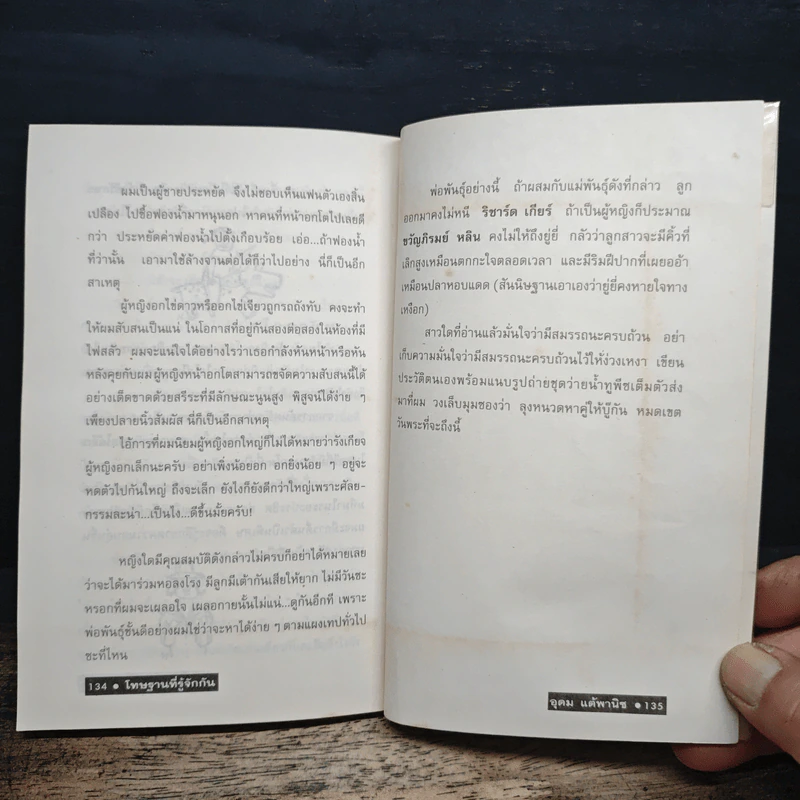 ผมเป็นผู้ชายประหยัด จึงไม่ชอบเห็นแฟนตัวเองสิ้น
เปลือง ไปซื้อฟองน้ำมาหนุนอก หาคนที่หน้าอกโตไปเลยดี
กว่า ประหยัดค่าฟองน้ำไปตั้งเกือบร้อย เอ่อ...ถ้าฟองน้ำ
ที่ว่านั้น เอามาใช้ล้างจานต่อได้ก็ว่าไปอย่าง นี่ก็เป็นอีก
สาเหตุ
ผู้หญิงอกไข่ดาวหรืออกไข่เจียวถูกรถถังทับ คงจะทำ
ให้ผมสับสนเป็นแน่ ในโอกาสที่อยู่กันสองต่อสองในห้องที่มี
ไฟสลัว ผมจะแน่ใจได้อย่างไรว่าเธอกำลังหันหน้าหรือหัน
หลังคุยกับผมผู้หญิงหน้าอกโตสามารถขจัดความสับสนนี้ได้
อย่างเด็ดขาดด้วยสรีระที่มีลักษณะนูนสูง พิสูจน์ได้ง่าย ๆ
เพียงปลายนิ้วสัมผัส นี่ก็เป็นอีกสาเหตุ
ไอ้การที่ผมนิยมผู้หญิงอกใหญ่ก็ไม่ได้หมายว่ารังเกียจ
ผู้หญิงอกเล็กนะครับ อย่าเพิ่งน้อยอก อกยิ่งน้อย ๆ อยู่จะ
หดตัวไปกันใหญ่ ถึงจะเล็ก ยังไงก็ยังดีกว่าใหญ่เพราะศัลย-
กรรมละน่า...เป็นไง...ดีขึ้นมั้ยครับ!
หญิงใดมีคุณสมบัติดังกล่าวไม่ครบก็อย่าได้หมายเลย
ว่าจะได้มาร่วมหอลงโรง มีลูกมีเต้ากันเสียให้ยาก ไม่มีวันซะ
หรอกที่ผมจะเผลอใจ เผลอกายนั้นไม่แน่...ดูกันอีกที เพราะ
พ่อพันธุ์ชั้นดีอย่างผมใช่ว่าจะหาได้ง่าย ๆ ตามแผงเทปทั่วไป
ซะที่ไหน
134 ● โทษฐานที่รู้จักกัน
พ่อพันธุ์อย่างนี้ ถ้าผสมกับแม่พันธุ์ดังที่กล่าว ลูก
ออกมาคงไม่หนี ริชาร์ด เกียร์ ถ้าเป็นผู้หญิงก็ประมาณ
ขวัญภิรมย์ หลิน คงไม่ให้ถึงยู่ยี่ กลัวว่าลูกสาวจะมีคิ้วที่
เลิกสูงเหมือนตกกะใจตลอดเวลา และมีริมฝีปากที่เผยออ้า
เหมือนปลาหอบแดด (สันนิษฐานเอาเองว่ายู่ยี่คงหายใจทาง
เหงือก)
สาวใดที่อ่านแล้วมั่นใจว่ามีสมรรถนะครบถ้วน อย่า
เก็บความมั่นใจว่ามีสมรรถนะครบถ้วนไว้ให้ง่วงเหงา เขียน
ประวัติตนเองพร้อมแนบรูปถ่ายชุดว่ายน้ำทูพีซเต็มตัวส่ง
มาที่ผม วงเล็บมุมซองว่า ลุงหนวดหาคู่ให้บู๊กัน หมดเขต
วันพระที่จะถึงนี้
อุดม แต้พานิช ● 135